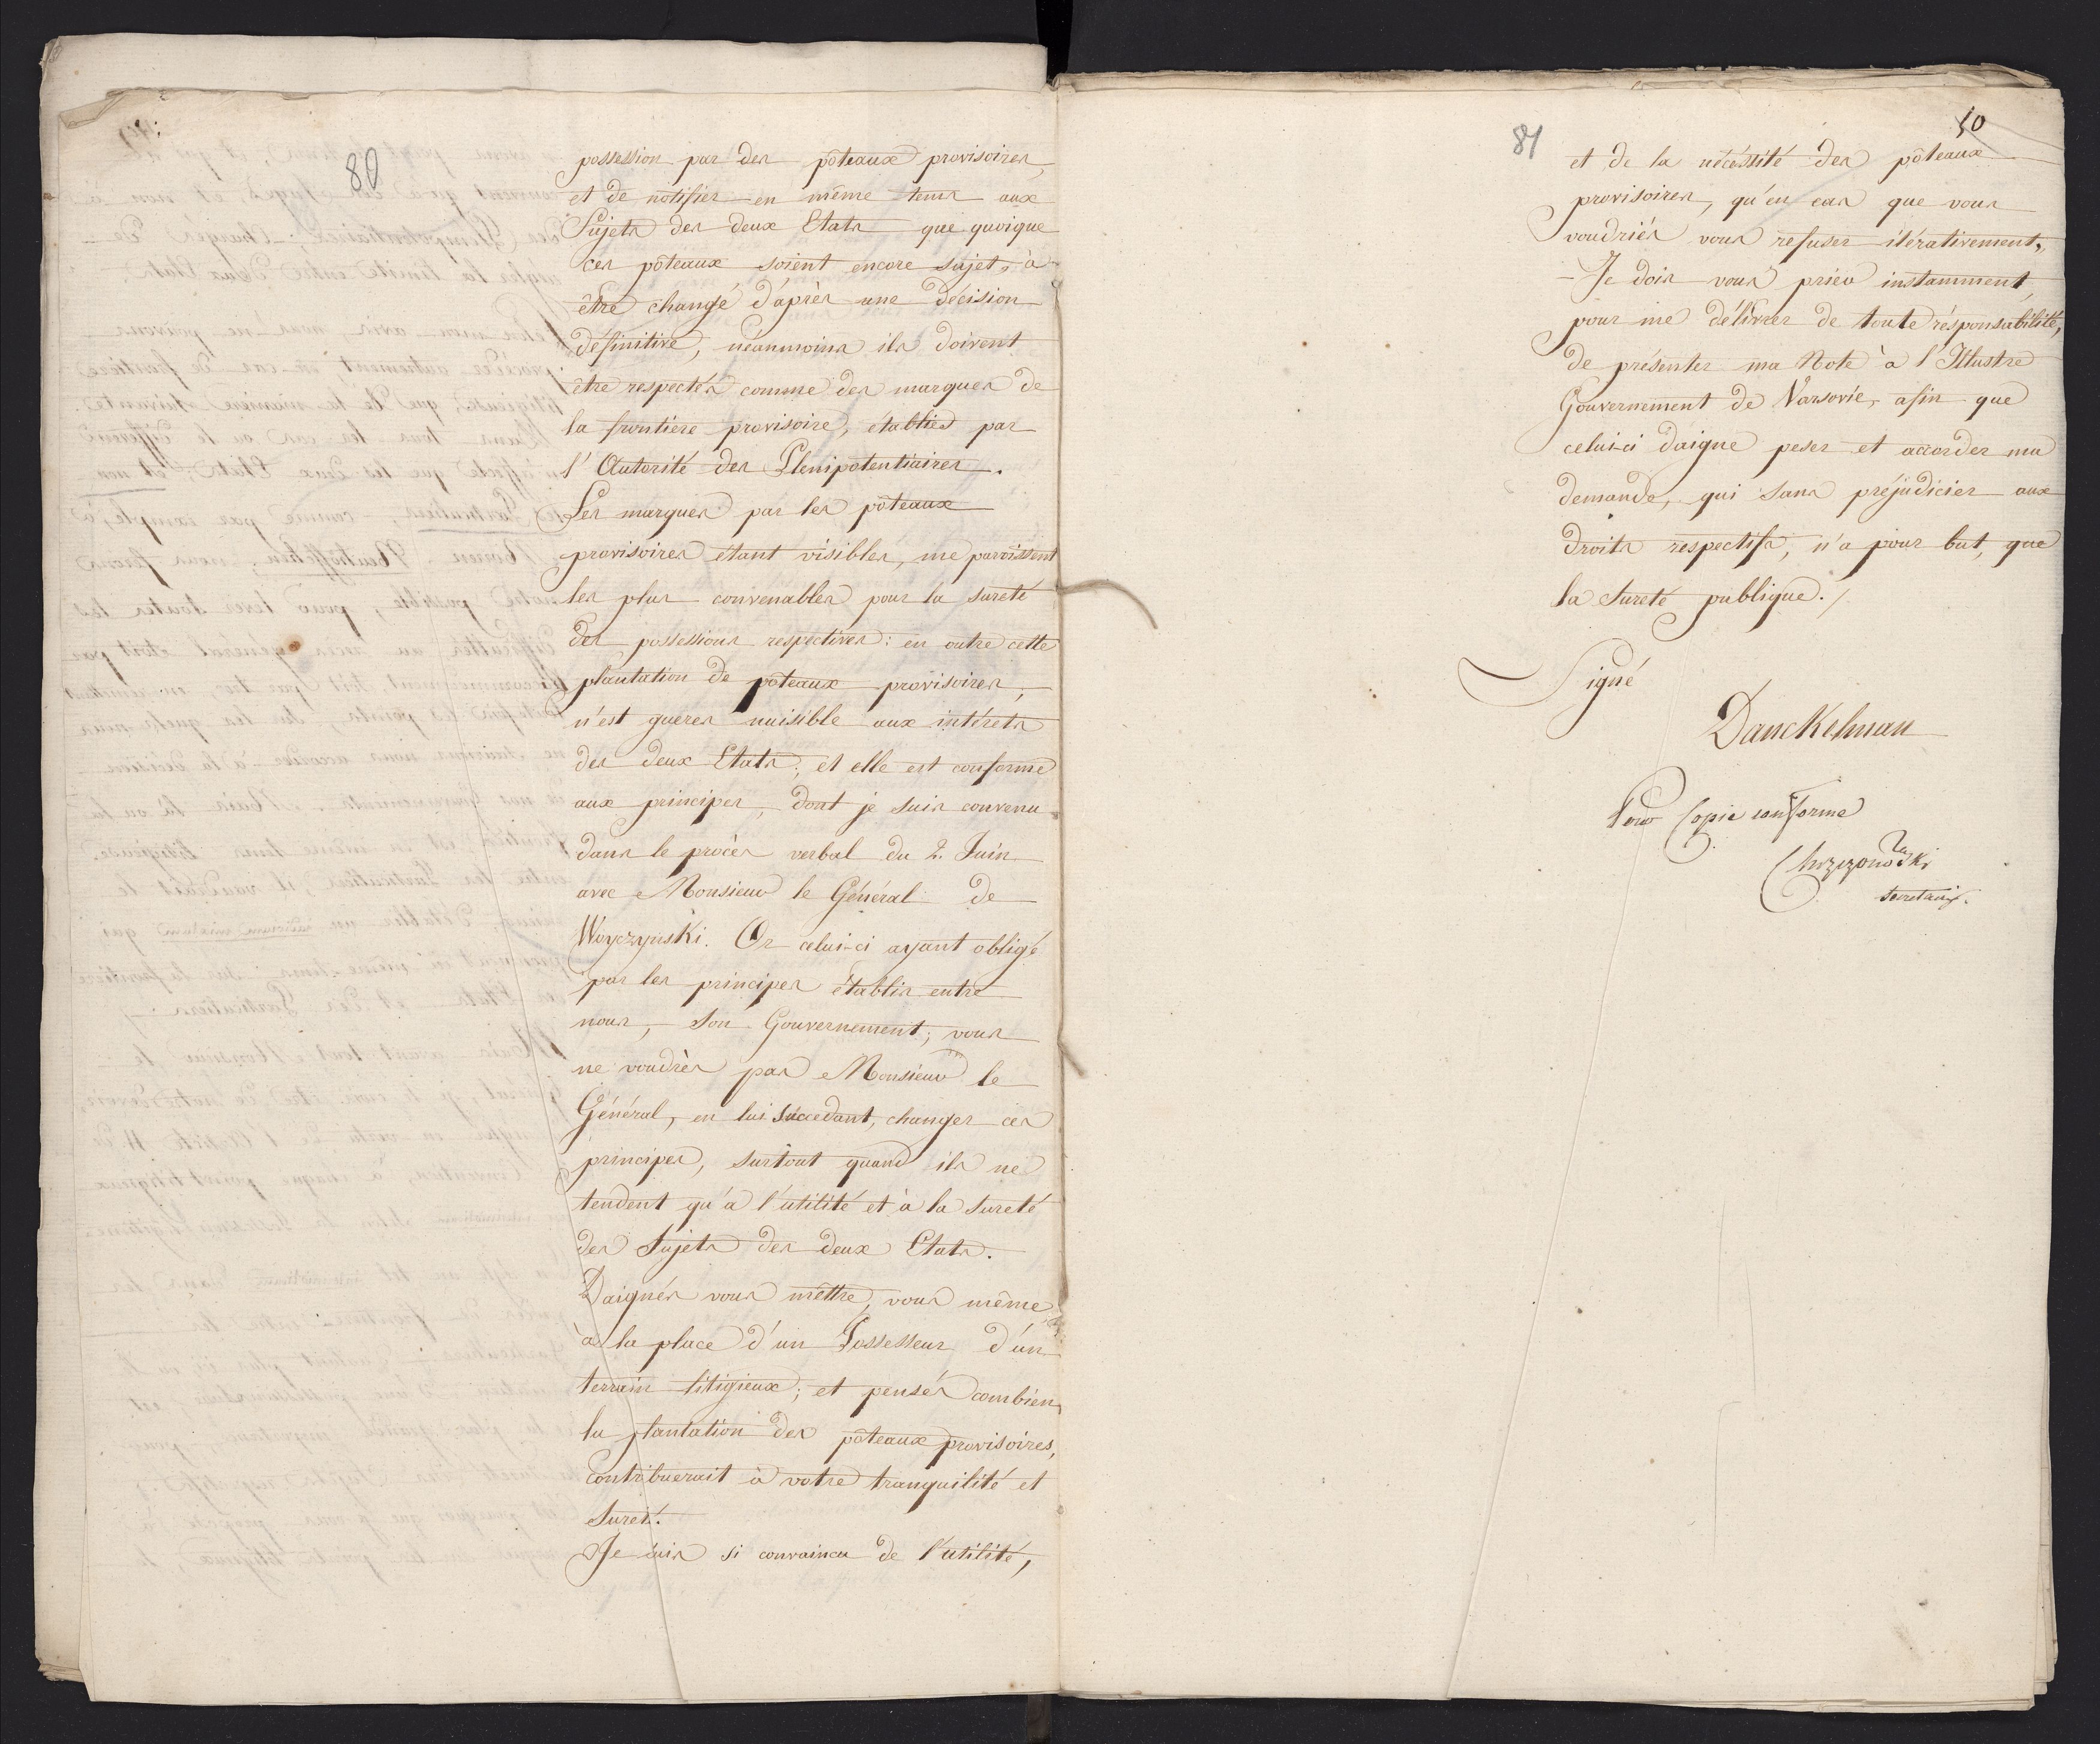 80
possession par des pôteaux provisoires,
et de notifier en même tems aux
Sujets des deux Etats que quoique
ces pôteaux soient encore sujets à
être changé d'après une décision
définitive, néanmoins ils doivent
être respectés comme des marques de
la frontiere provisoire, établies par
l'Autorité des Plenipotentiaires.
Les marques par les pôteaux
provisoires étant visibles, me paroissent
les plus convenables pour la sureté
des possessions respectives: en outre cette
plantation de pôteaux provisoires,
n'est gueres nuisible aux intérets
des deux Etats; et elle est conforme
aux principes, dont je suis convenu
dans le procès verbal du 2. Juin
avec Monsieur le Général de
Woyczyński. Or celui-ci ayant obligé
par les principes établis entre
nous, son Gouvernement; vous
ne voudrès pas Monsieur le
Général, en lui succedant, changer ces
principes, surtout quand ils ne
tendent qu'a l'utilité et à la sureté
des Sujets des deux Etats.
Daignés vous mêttre, vous même
à la place d'un Possesseur d'un
terrain litigieux; et pensés combien
la plantation des pôteaux provisoires,
contribuerait à votre tranquilité et
sureté.
Je suis si convaincu de l'utilité,
81
10
et de la nécessité des pôteaux
provisoires, qu'en cas que vous
voudriés vous refuser itérativement,
Je dois vous prier instamment,
pour me délivrer de toute résponsabilité,
de présenter ma Note à l'Illustre
Gouvernement de Varsovie, afin que
celui-ci daigne peser et accorder ma
demande, qui sans préjudicier aux
droits respectifs, n'a pour but, que
la sureté publique./
Signé
Danckelman
Pour Copie conforme
Chrzczonowski
Secretaire.